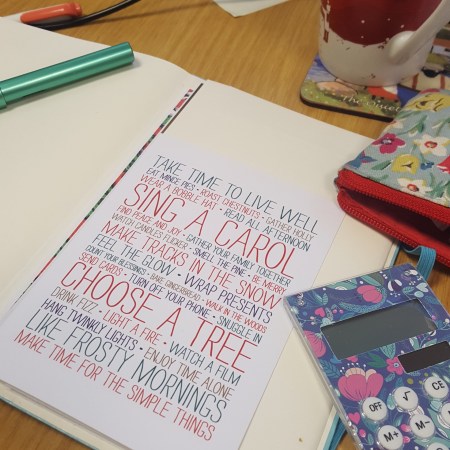 TAKE TIME TO LIVE WELL
EAT MINCE PIES • ROAST CHESTNUTS • GATHER HOLLY
WEAR A BOBBLE HAT • READ ALL AFTERNOON
SING A CAROL
FIND PEACE AND JOY • GATHER YOUR FAMILY TOGETHER
WATCH CANDLES FLICKER • SMELL THE PINE • BE MERRY
MAKE TRACKS IN THE SNOW
FEEL THE GLOW • WRAP PRESENTS
COUNT YOUR BLESSINGS • BAKE GINGERBREAD • WALK IN THE WOODS
SEND CARDS • TURN OFF YOUR PHONE • SNUGGLE IN
CHOOSE A TREE
DRINK FIZZ • LIGHT A FIRE • WATCH A FILM
HANG TWINKLY LIGHTS • ENJOY TIME ALONE
LIKE FROSTY MORNINGS
MAKE TIME FOR THE SIMPLE THINGS
OFF √ CE
M+ M−